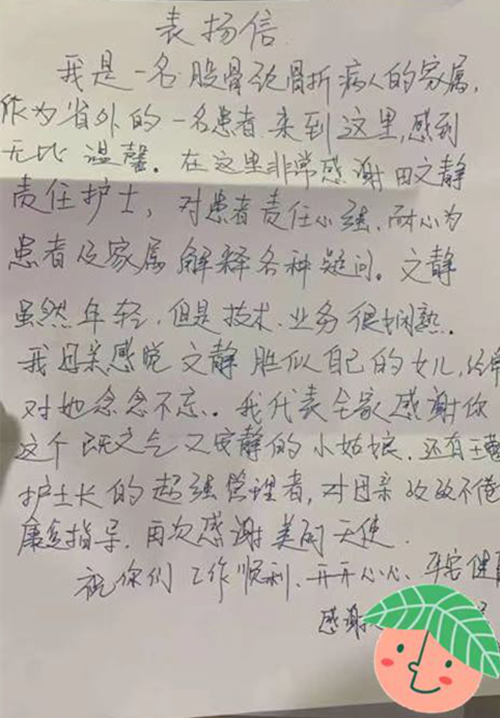 表扬信
我是一名股骨颈骨折病人的家属,
作为省外的一名患者,来到这里,感到
无比温馨。在这里非常感谢田文静
责任护士,对患者责任心强,耐心为
患者及家属解释各种疑问。文静
虽然年轻,但是技术、业务很娴熟。
我母亲感觉文静胜似自己的女儿,经常
对她念念不忘。我代表全家感谢你
这个既文气又安静的小姑娘,还有王
护士长的超强管理者,对母亲孜孜不倦
康复指导,再次感谢美丽天使.
祝你们工作顺利、开开心心、平安健
感谢